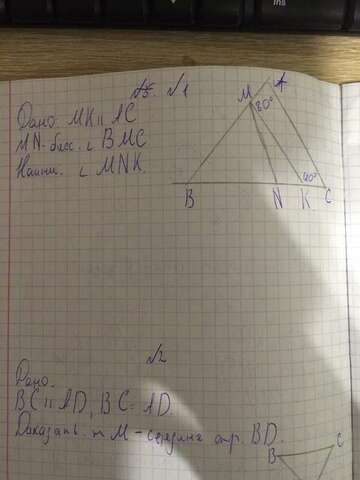 √1
Дано: MK || AC
MN - бисс. ∠ BMC
Найти: ∠ MNK.
M A
80°
40°
B N K C
√2
Дано.
BC || AD, BC = AD.
Доказать. M - середина отр. BD.
B C